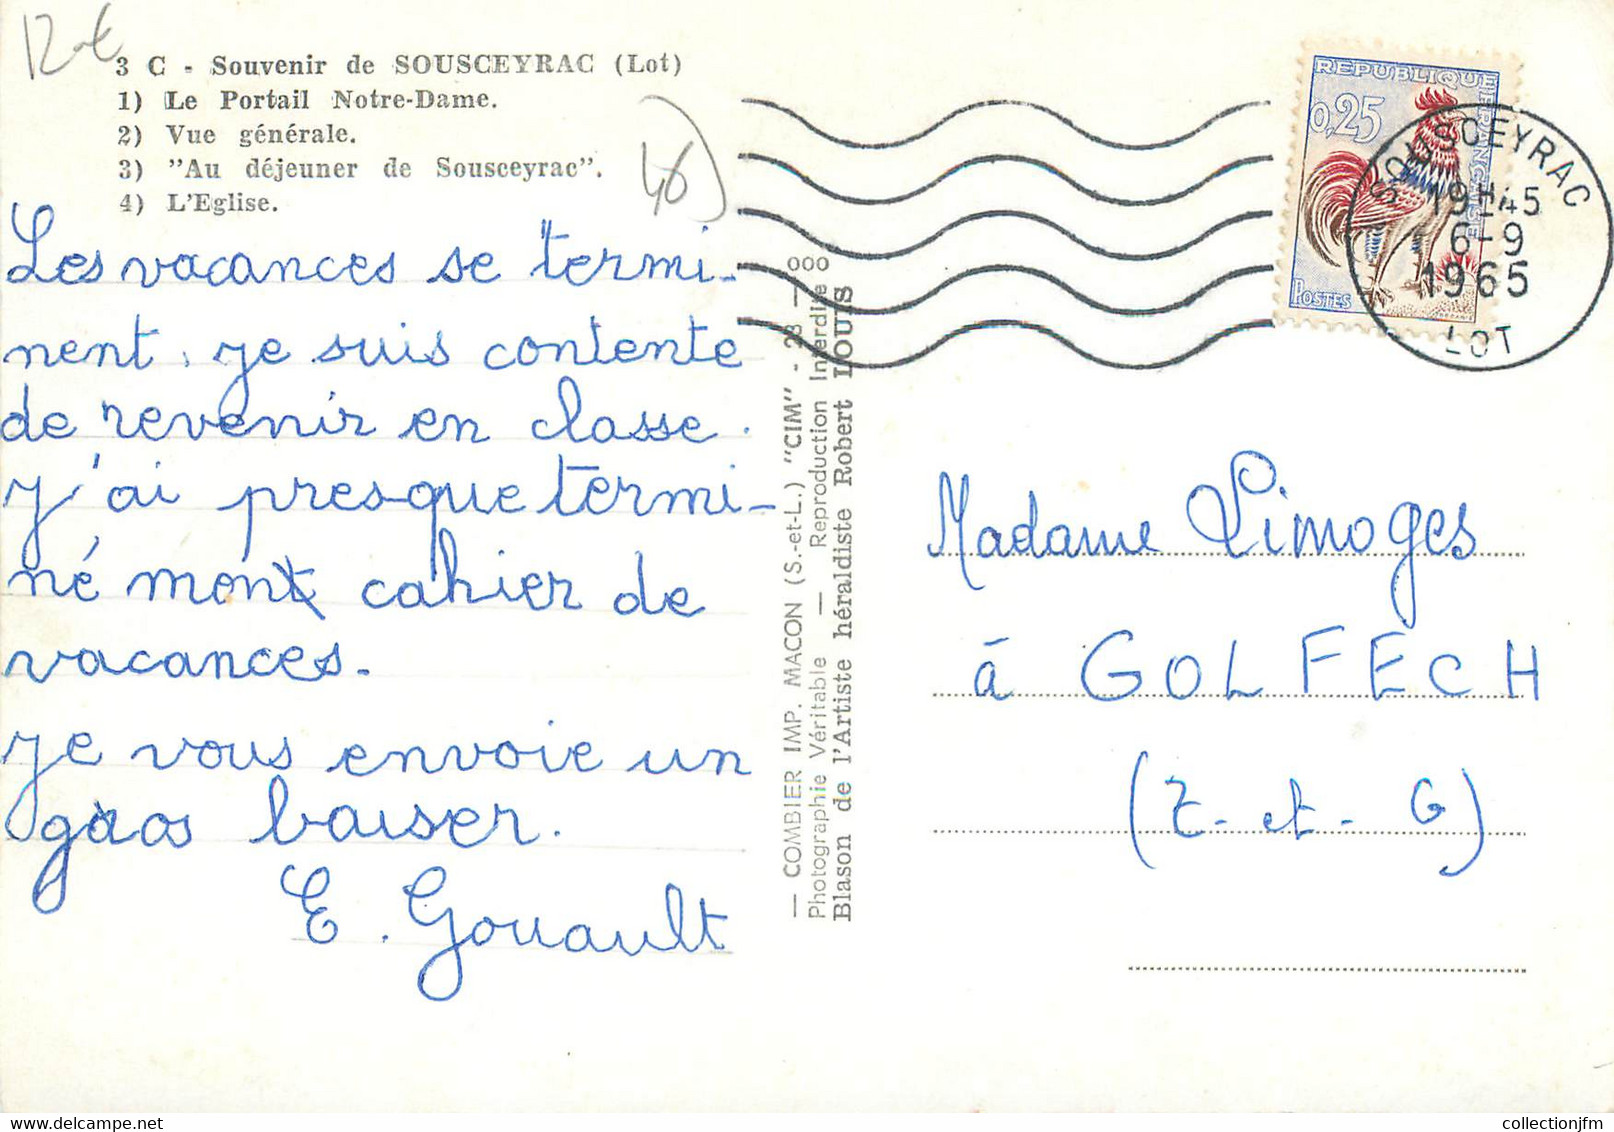 12€
3 C - Souvenir de SOUSCEYRAC (Lot)
1) Le Portail Notre-Dame.
2) Vue générale.
3) "Au déjeuner de Sousceyrac".
4) L'Eglise.
46)
Les vacances se termi-
nent, je suis contente
de revenir en classe.
J'ai presque termi-
né mon cahier de
vacances.
Je vous envoie un
gros baiser.
E. Gouault
— COMBIER IMP. MACON (S.-et-L.) "CIM" - 28 — ooo
Photographie Véritable — Reproduction Interdite
Blason de l'Artiste héraldiste Robert LOUIS
REPUBLIQUE FRANÇAISE
0,25
POSTES
SOUSCEYRAC
19H45
6-9
1965
LOT
Madame Limoges
à GOLFECH
(T-et-G)
collectionjfm